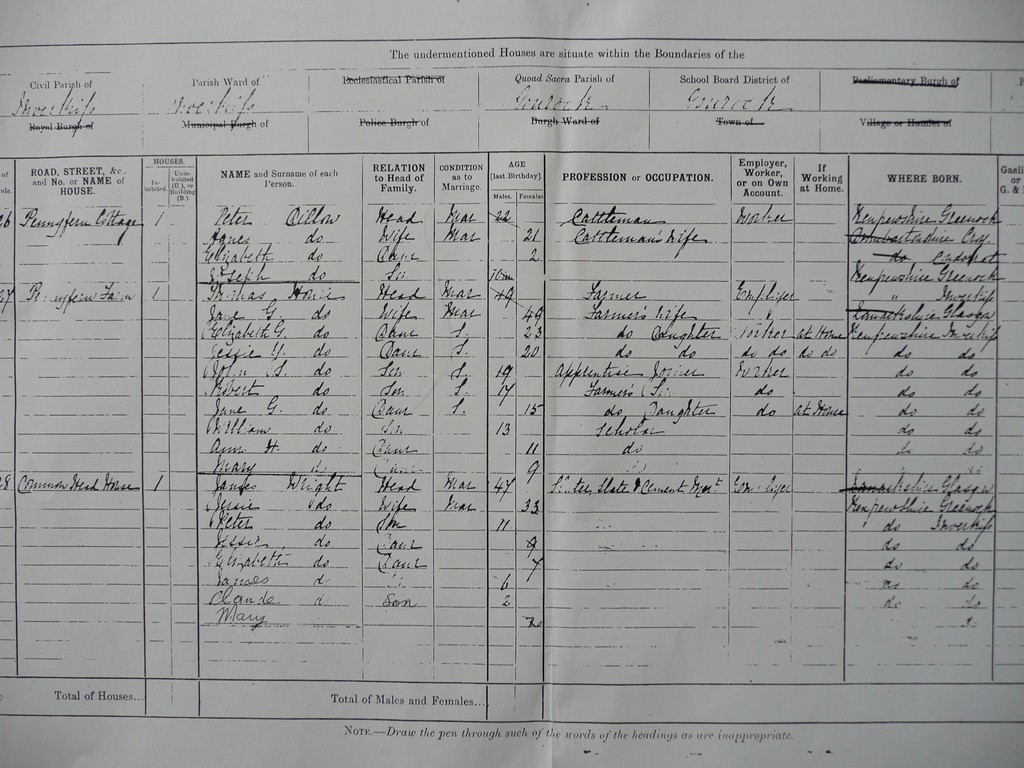 The undermentioned Houses are situate within the Boundaries of the
Civil Parish of Parish Ward of Ecclesiastical Parish of Quoad Sacra Parish of School Board District of Parliamentary Burgh of
Gourock Gourock
Royal Burgh of Municipal Burgh of Police Burgh of Burgh Ward of Town of Village or Hamlet of
ROAD, STREET, &c., and No. or NAME of HOUSE. HOUSES. In-habited. Unin-habited (U.), or Building (B.) NAME and Surname of each Person. RELATION to Head of Family. CONDITION as to Marriage. AGE [last Birthday]. Males. Females. PROFESSION or OCCUPATION. Employer, Worker, or on Own Account. If Working at Home. WHERE BORN.
Cottage 1 Peter Head Mar 22 Cattleman Worker Renfrewshire Greenock
do Wife Mar 21 Cattleman's Wife
Elizabeth do Daur 2 do
Joseph do Son Renfrewshire Greenock
1 Thomas Head Mar 49 Farmer Employer " Inverkip
Jane G. do Wife Mar 49 Farmer's Wife Lanarkshire Glasgow
Elizabeth G. do Daur S. 23 do Daughter Worker at Home Renfrewshire Inverkip
Jessie do Daur S. 20 do do do do do do do do
John S. do Son S. 19 Apprentice Joiner Worker do do
Robert do Son S. 17 Farmer's Son do do do
Jane G. do Daur S. 15 do Daughter do at Home do do
William do Son 13 Scholar do do
Ann H. do Daur 11 do do
Mary 9
28 Common Head House 1 James Wright Head Mar 47 Slater, Slate & Cement Mert. Employer Lanarkshire Glasgow
Jessie do Wife Mar 33 Renfrewshire Greenock
Peter do Son 11 do Inverkip
Jessie do Daur 9 do do
Elizabeth do Daur 7 do do
James 6 do do
Claude Son 2 do do
Mary
Total of Houses...
Total of Males and Females...
NOTE.—Draw the pen through such of the words of the headings as are inappropriate.